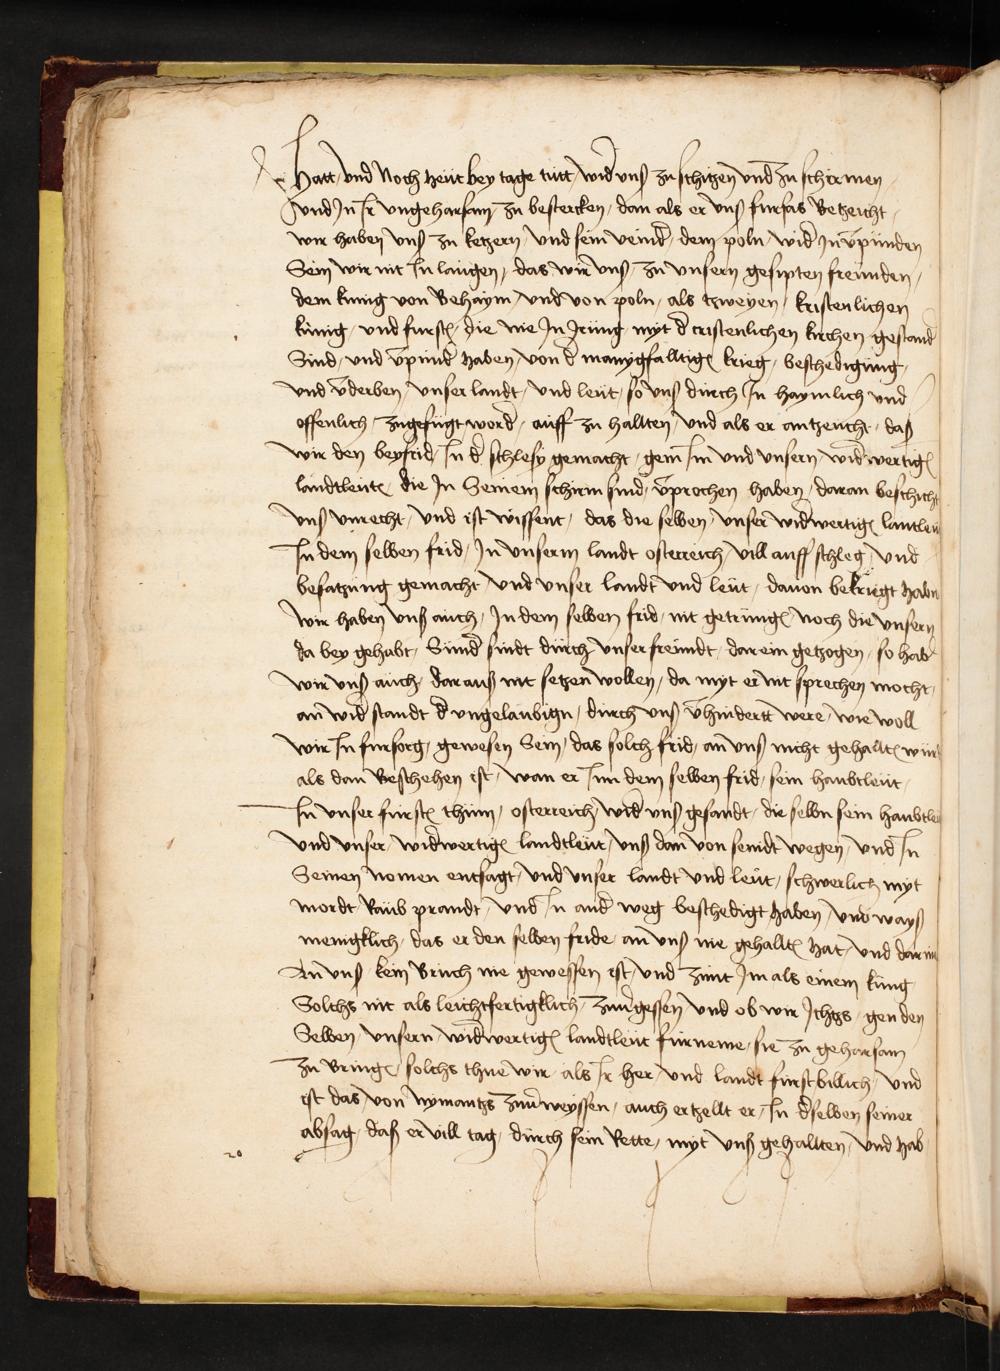 Hatt / vnd Noch heut bey tage tutt / wid vnß zu schützen vnd zu schirmen
vnd In Ir vngeharsam zu bestercken / dan als er vnß furfas Betzeicht /
wir haben vnß zu ketzern / vnd sein veind / dem poln / wid In v̄pünden
Sein wir nit In laugen / das wir vnß / zu vnsern gesipten freunden /
dem kunig von Behaym / vnd von poln / als tzweyen / kristenlichen
künig / vnd furstn / die nie In Irüng / myt d cristenlichen kirchen gestand
Sind / vnd v̄pund haben / von d manygfalltign krieg / beschedigung /
vnd v̄derben / vnser landt / vnd leut / so vnß durch In haymlich vnd
offenlich zugefugt word / auff zu hallten / vnd als er antzeucht / daß
wir den beyfrid / In d schlesy gemacht / gein Im vnd vnsern widwertign
landtleutn / die In Seinem schirm sind / v̄prochen haben / daran beschicht
vnß vnrecht / vnd ist wissent / das die selben / vnser widwertign lantleu
In dem selben frid / In vnserm landt osterreich vill auffschleg / vnd
besatzung gemacht vnd vnser landt vnd leut / dauon bekriegt haben
wir haben vnß auch / In dem selben frid / nit getrungn / noch die vnsern
da bey gehabt / Sund sindt durch vnser freundt / darein getzogen / so hab
wir vnß auch / darauß nit setzen wollen / da myt er nit sprechen mocht /
an wid standt d vngelaubign / durch vnß v̄hindertt were / wie woll
wir In fursorg / gewesen Sein / das solch frid / an vnß nicht gehalltn wür
als dan Beschehen ist / wan er Inn dem selben frid / sein haubtleut /
In vnser furstn thum / osterreich / wid vnß gesandt / die selbn sein haubtleu
vnd vnser / widwertign landtleut / vnß dan von seindt wegen / vnd In
Seinen Nomen entsagt / vnd vnser landt vnd leut / schwerlich myt
mordt / Raub prandt / vnd In and weg beschedigt haben / vnd wayß
menigklich / das er den selben fride / an vnß nie gehalltn hat / vnd darin
An vnß / kein Bruch nie gewessen ist / vnd zimt Im als einem küng
Solchs nit als leichtfertigklich zuu̅gessen vnd ob wir Ichts / gen den
Selben / vnsern widwertign landtleut furneme / sie zu geharsam
zu Bringn / solchs thue wir / als Ir her / vnd landt furst billich / vnd
ist das von nymantzs zuu̅weyssen / auch ertzellt er / In dselben seiner
absag / daß er vill tag / durch sein Rette / myt vnß gehallten / vnd hab